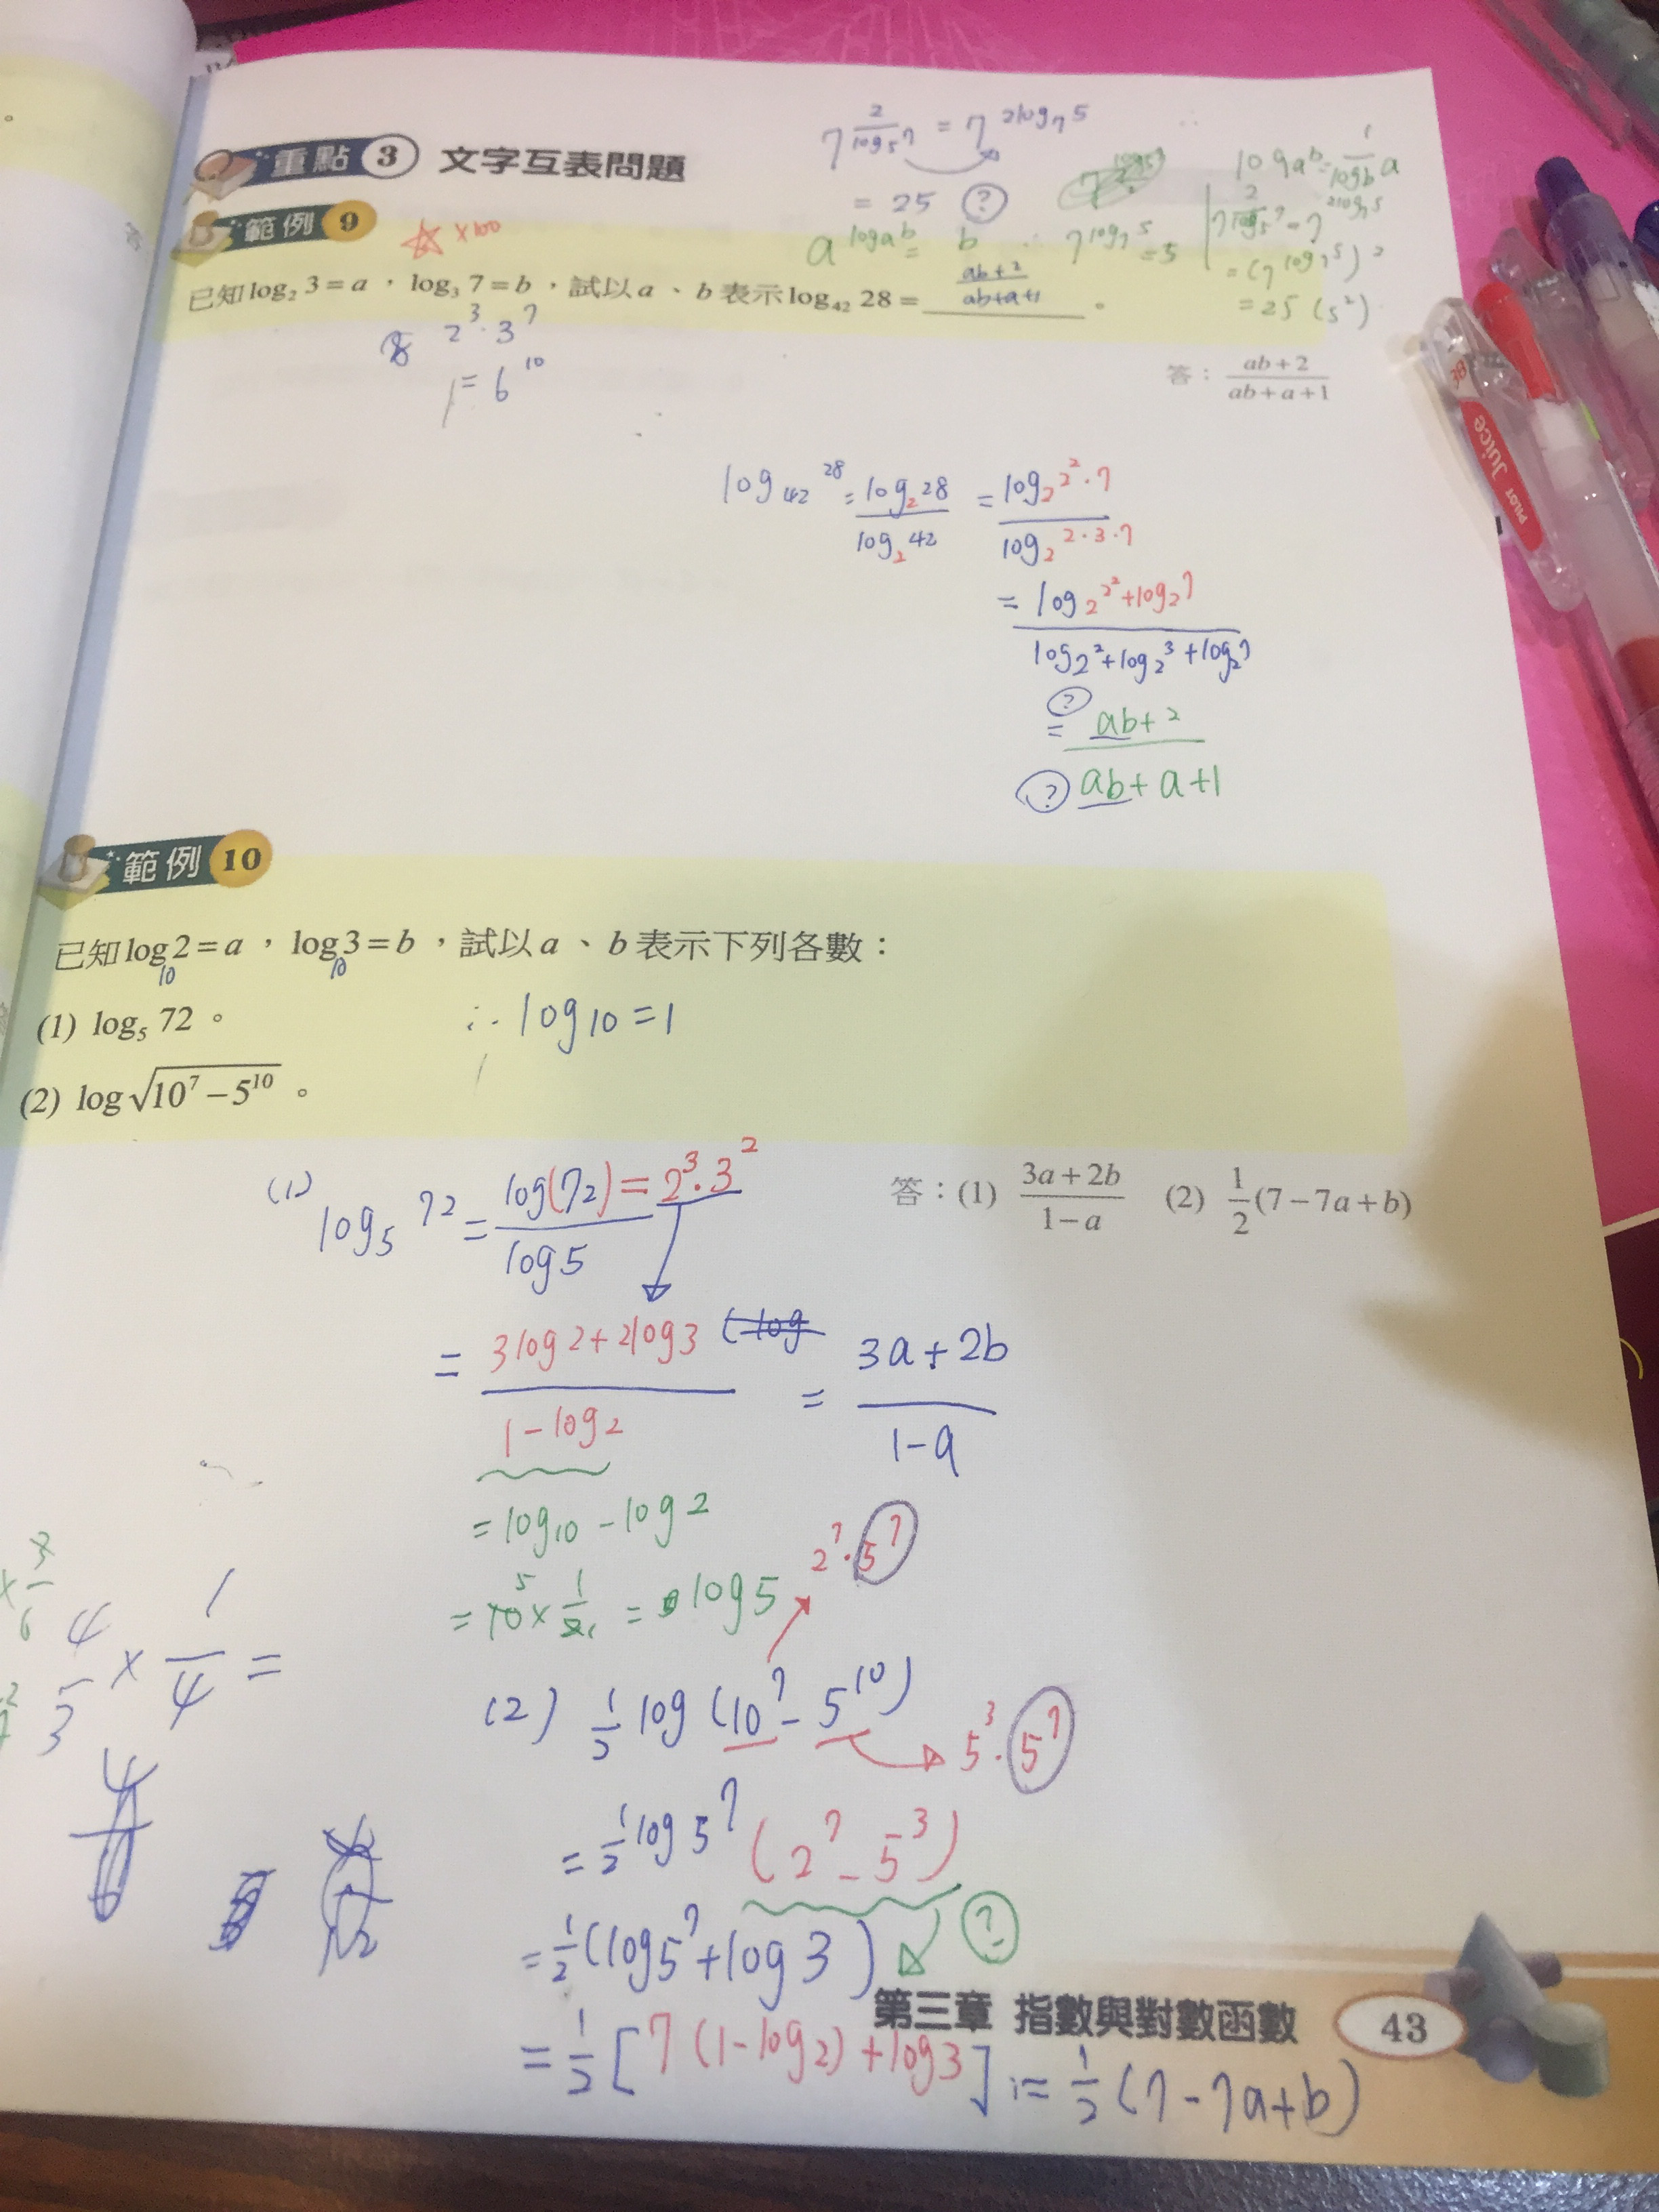 重點 3 文字互表問題
7^(2/log₅7) = 7^(2log₇5)
= 25 ?
a^(logₐb) = b ∴ 7^(log₇5) = 5
logₐb = 1/log_b a
7^(2/log₅7) = 7^(2log₇5)
= (7^(log₇5))²
= 25 (5²)
範例 9 ☆ ×100
已知 log₂ 3 = a,log₃ 7 = b,試以 a、b 表示 log₄₂ 28 = (ab+2)/(ab+a+1)。
2³·3⁷
= 6¹⁰
答:(ab+2)/(ab+a+1)
log₄₂28 = log₂28/log₂42 = log₂2²·7/log₂2·3·7
= (log₂2²+log₂7)/(log₂2+log₂3+log₂7)
? = (ab+2)/(ab+a+1) ?
範例 10
已知 log 2 = a,log 3 = b,試以 a、b 表示下列各數:
10 10
(1) log₅ 72。
∴ log10 = 1
(2) log√(10⁷−5¹⁰)。
答:(1) (3a+2b)/(1−a) (2) 1/2(7−7a+b)
(1) log₅72 = log(72)/log5 = 2³·3²
= (3log2+2log3)/(1−log2) = (3a+2b)/(1−a)
= log10 − log2
= 10 × 1/2 = log5
2⁷·5⁷
(2) 1/2 log(10⁷−5¹⁰)
5³·5⁷
= 1/2 log5⁷(2⁷−5³)
= 1/2(log5⁷+log3) ?
= 1/2[7(1−log2)+log3] = 1/2(7−7a+b)
4/5 × 1/4 =
第三章 指數與對數函數 43
Juice
PILOT